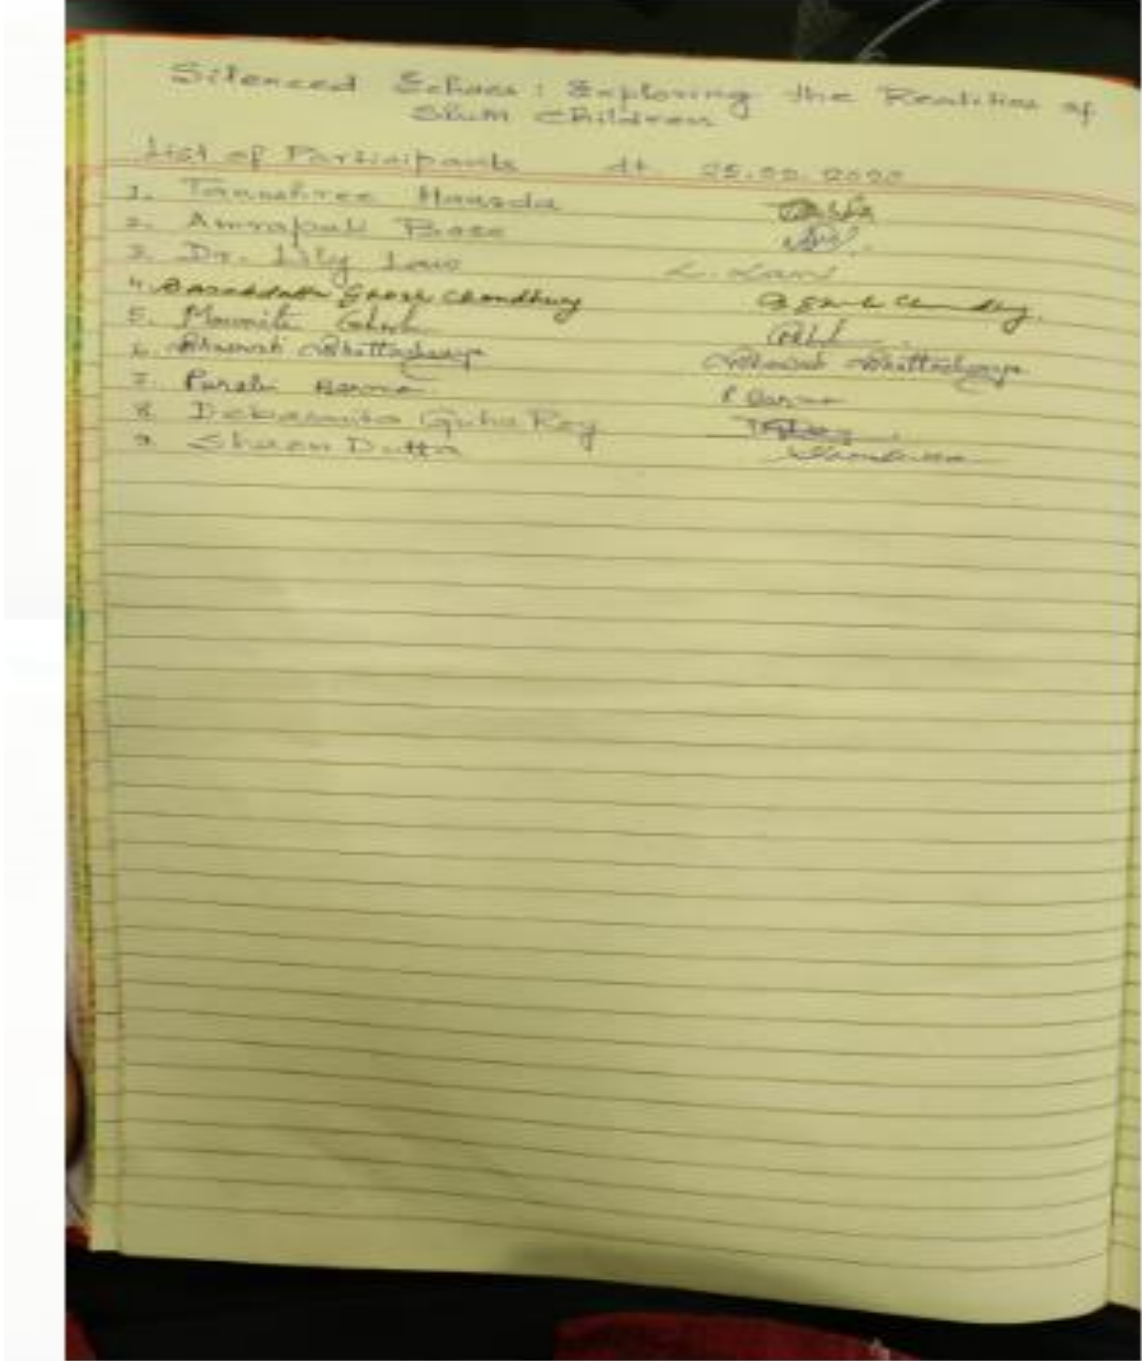 Silenced Echoes: Exploring the Realities of
Slum Children
List of Participants dt. 25.02.2020
1. Tanushree Hansda
2. Amrapali Bose
3. Dr. Lily Law L. Law
4. Ghosh Choudhury
5. Moumita Ghosh
6. Bhaswati Bhattacharya Bhaswati Bhattacharya
7. Purabi Barma P Barma
8. Debasmita Guha Roy
9. Sharon Dutta